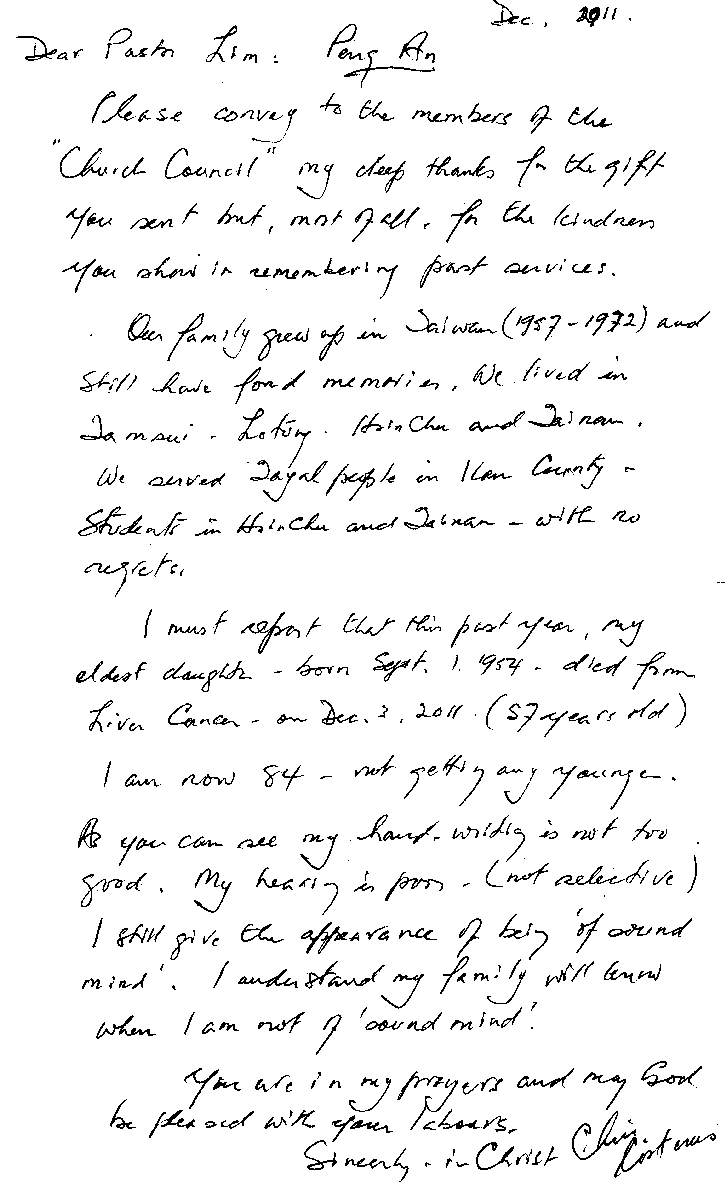 Dec. 2011.
Dear Pastor Lim: Peng An
Please convey to the members of the
"Church Council" my deep thanks for the gift
you sent but, most of all, for the kindness
you show in remembering past services.
Our family grew up in Taiwan (1957-1972) and
still have fond memories. We lived in
Tamsui - Lotung - HsinChu and Tainan.
We served Tayal people in Ilan County -
Students in HsinChu and Tainan - with no
regrets.
I must report that this past year, my
eldest daughter - born Sept. 1. 1954 - died from
Liver Cancer - on Dec. 3, 2011. (57 years old)
I am now 84 - not getting any younger.
As you can see my hand-writing is not too
good. My hearing is poor - (not selective)
I still give the appearance of being 'of sound
mind'. I understand my family will know
when I am not of 'sound mind'.
You are in my prayers and may God
be pleased with your labours.
Sincerely - in Christ